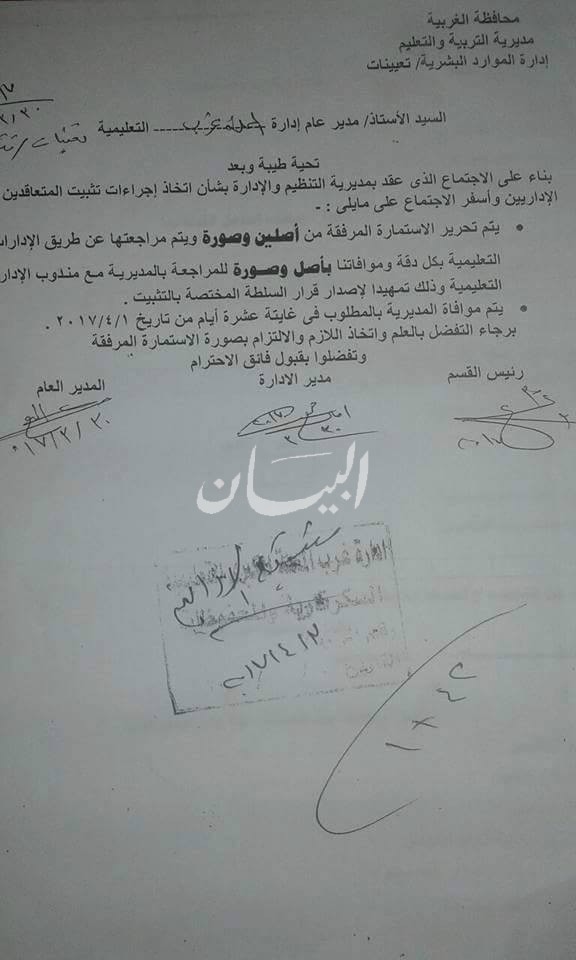 محافظة الغربية
مديرية التربية والتعليم
إدارة الموارد البشرية/ تعيينات
السيد الأستاذ/ مدير عام إدارة المحلة غرب التعليمية
تحية طيبة وبعد
بناء على الاجتماع الذى عقد بمديرية التنظيم والإدارة بشأن اتخاذ إجراءات تثبيت المتعاقدين
الإداريين وأسفر الاجتماع على مايلى : -
• يتم تحرير الاستمارة المرفقة من أصلين وصورة ويتم مراجعتها عن طريق الإدارات
التعليمية بكل دقة وموافاتنا بأصل وصورة للمراجعة بالمديرية مع مندوب الإدار
التعليمية وذلك تمهيدا لإصدار قرار السلطة المختصة بالتثبيت .
• يتم موافاة المديرية بالمطلوب فى غايتة عشرة أيام من تاريخ ٢٠١٧/٤/١ .
برجاء التفضل بالعلم واتخاذ اللازم والالتزام بصورة الاستمارة المرفقة
وتفضلوا بقبول فائق الاحترام
رئيس القسم
مدير الادارة
المدير العام
٢٠١٧/٣/٣٠
البيان
ادارة غرب المحلة
السكرتارية
٢٠١٧/٤/٣
٤٢ × ١